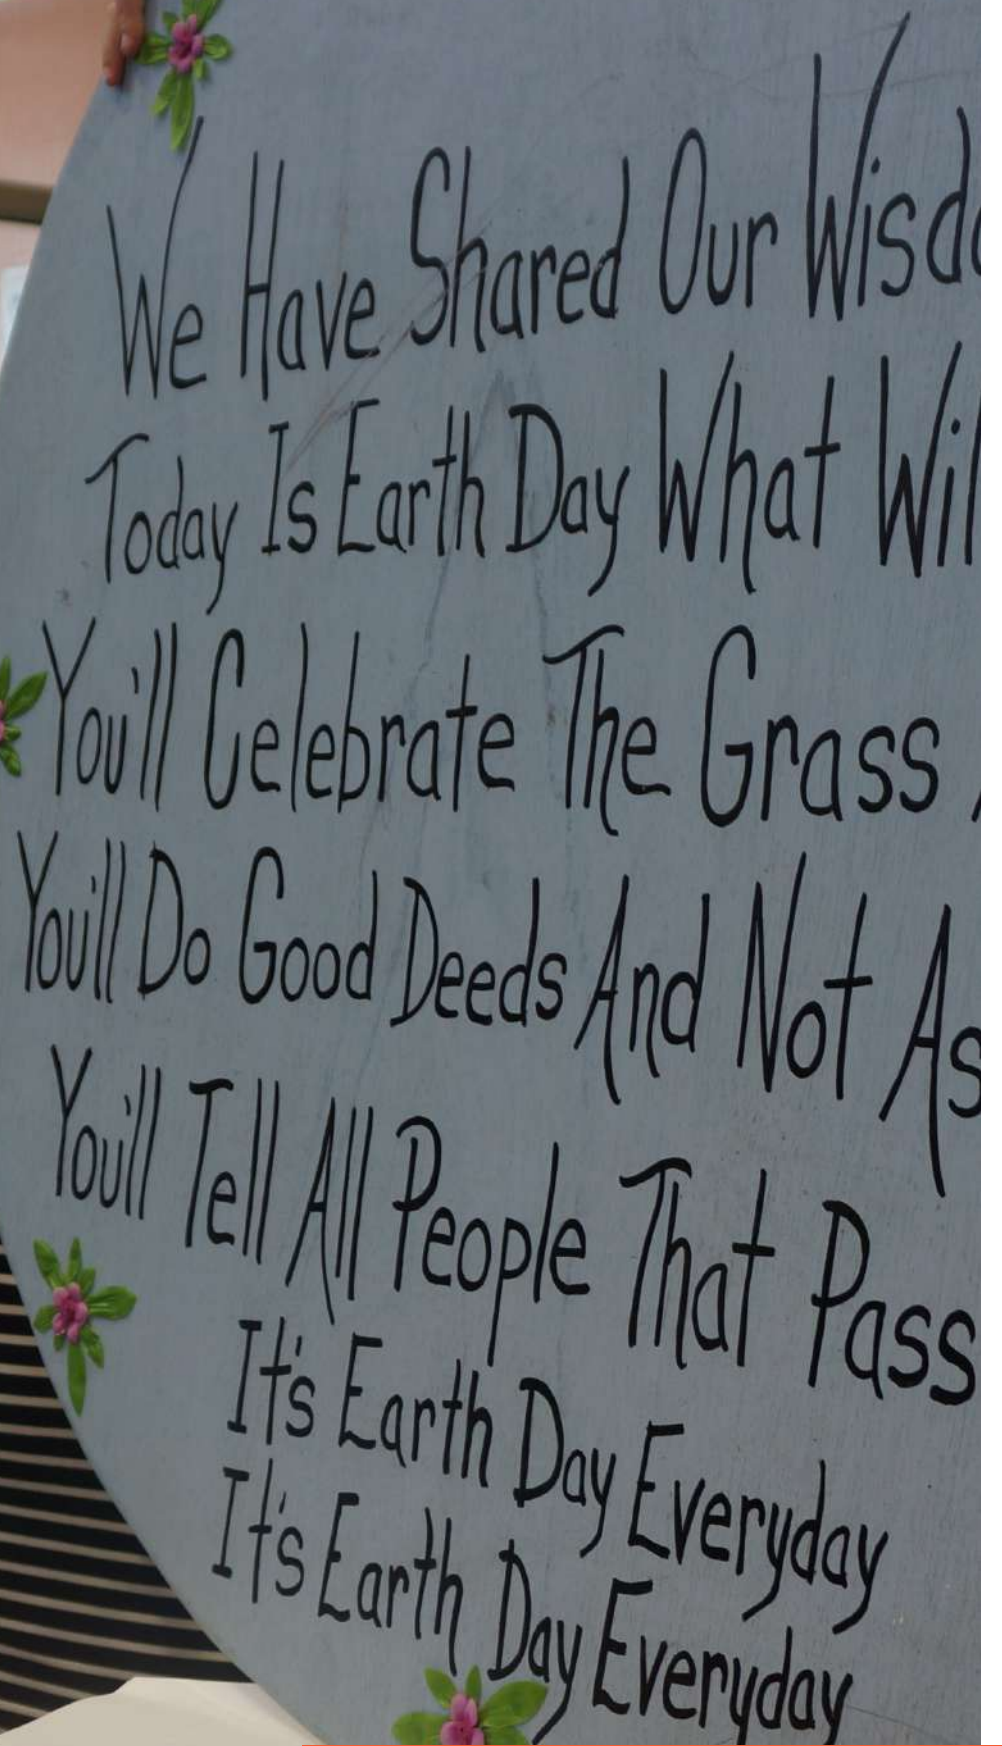 We Have Shared Our Wisdo
Today Is Earth Day What Wil
You'll Celebrate The Grass
You'll Do Good Deeds And Not As
You'll Tell All People That Pass
It's Earth Day Everyday
It's Earth Day Everyday